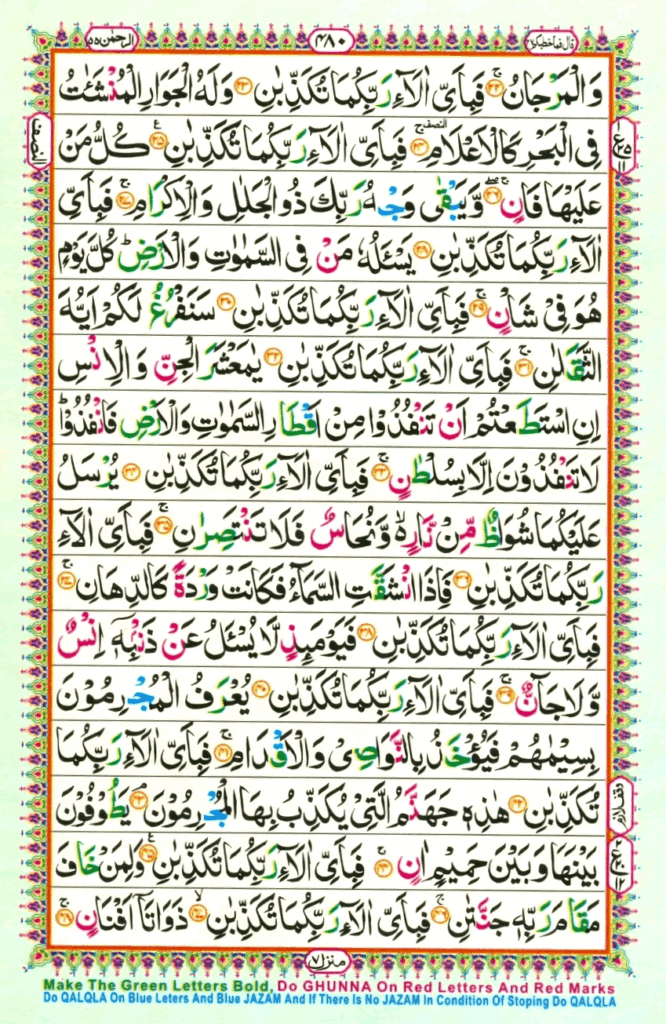 الرحمٰن ٥٥
٤٨٠
قال فما خطبكم ٢٧
وَالْمَرْجَانُ ﴿٢٢﴾ فَبِاَىِّ اٰلَآءِ رَبِّكُمَا تُكَذِّبٰنِ ﴿٢٣﴾ وَلَهُ الْجَوَارِ الْمُنْشَئٰتُ
فِى الْبَحْرِ كَالْاَعْلَامِ ﴿٢٤﴾ فَبِاَىِّ اٰلَآءِ رَبِّكُمَا تُكَذِّبٰنِ ﴿٢٥﴾ كُلُّ مَنْ
عَلَيْهَا فَانٍ ﴿٢٦﴾ وَّيَبْقٰى وَجْهُ رَبِّكَ ذُو الْجَلٰلِ وَالْاِكْرَامِ ﴿٢٧﴾ فَبِاَىِّ
اٰلَآءِ رَبِّكُمَا تُكَذِّبٰنِ ﴿٢٨﴾ يَسْئَلُهٗ مَنْ فِى السَّمٰوٰتِ وَالْاَرْضِ ؕ كُلَّ يَوْمٍ
هُوَ فِىْ شَاْنٍ ﴿٢٩﴾ فَبِاَىِّ اٰلَآءِ رَبِّكُمَا تُكَذِّبٰنِ ﴿٣٠﴾ سَنَفْرُغُ لَكُمْ اَيُّهَ
الثَّقَلٰنِ ﴿٣١﴾ فَبِاَىِّ اٰلَآءِ رَبِّكُمَا تُكَذِّبٰنِ ﴿٣٢﴾ يٰمَعْشَرَ الْجِنِّ وَالْاِنْسِ
اِنِ اسْتَطَعْتُمْ اَنْ تَنْفُذُوْا مِنْ اَقْطَارِ السَّمٰوٰتِ وَالْاَرْضِ فَانْفُذُوْا ؕ
لَا تَنْفُذُوْنَ اِلَّا بِسُلْطٰنٍ ﴿٣٣﴾ فَبِاَىِّ اٰلَآءِ رَبِّكُمَا تُكَذِّبٰنِ ﴿٣٤﴾ يُرْسَلُ
عَلَيْكُمَا شُوَاظٌ مِّنْ نَّارٍ ۙ وَّنُحَاسٌ فَلَا تَنْتَصِرٰنِ ﴿٣٥﴾ فَبِاَىِّ اٰلَآءِ
رَبِّكُمَا تُكَذِّبٰنِ ﴿٣٦﴾ فَاِذَا انْشَقَّتِ السَّمَآءُ فَكَانَتْ وَرْدَةً كَالدِّهَانِ ﴿٣٧﴾
فَبِاَىِّ اٰلَآءِ رَبِّكُمَا تُكَذِّبٰنِ ﴿٣٨﴾ فَيَوْمَئِذٍ لَّا يُسْئَلُ عَنْ ذَنْۢبِهٖۤ اِنْسٌ
وَّلَا جَآنٌّ ﴿٣٩﴾ فَبِاَىِّ اٰلَآءِ رَبِّكُمَا تُكَذِّبٰنِ ﴿٤٠﴾ يُعْرَفُ الْمُجْرِمُوْنَ
بِسِيْمٰهُمْ فَيُؤْخَذُ بِالنَّوَاصِىْ وَالْاَقْدَامِ ﴿٤١﴾ فَبِاَىِّ اٰلَآءِ رَبِّكُمَا
تُكَذِّبٰنِ ﴿٤٢﴾ هٰذِهٖ جَهَنَّمُ الَّتِىْ يُكَذِّبُ بِهَا الْمُجْرِمُوْنَ ﴿٤٣﴾ يَطُوْفُوْنَ
بَيْنَهَا وَبَيْنَ حَمِيْمٍ اٰنٍ ﴿٤٤﴾ فَبِاَىِّ اٰلَآءِ رَبِّكُمَا تُكَذِّبٰنِ ﴿٤٥﴾ وَلِمَنْ خَافَ
مَقَامَ رَبِّهٖ جَنَّتٰنِ ﴿٤٦﴾ فَبِاَىِّ اٰلَآءِ رَبِّكُمَا تُكَذِّبٰنِ ﴿٤٧﴾ ذَوَاتَاۤ اَفْنَانٍ ﴿٤٨﴾
النصف
وقف لازم
منزل ٧
Make The Green Letters Bold, Do GHUNNA On Red Letters And Red Marks
Do QALQLA On Blue Leters And Blue JAZAM And If There Is No JAZAM In Condition Of Stoping Do QALQLA